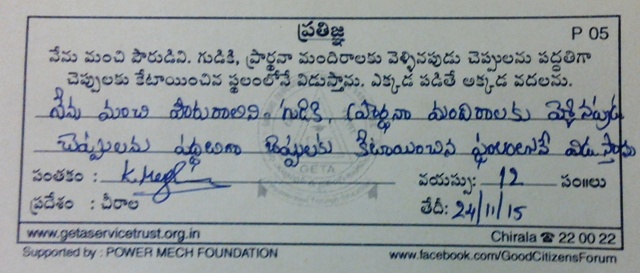 ప్రతిజ్ఞ
P 05
నేను మంచి పౌరుడిని. గుడికి, ప్రార్థనా మందిరాలకు వెళ్ళినపుడు చెప్పులను పద్ధతిగా
చెప్పులకు కేటాయించిన స్థలంలోనే విడుస్తాను. ఎక్కడ పడితే అక్కడ వదలను.
నేను మంచి పౌరురాలిని గుడికి, ప్రార్థనా మందిరాలకు వెళ్లినపుడు
చెప్పులను పద్ధతిగా చెప్పులకు కేటాయించిన విడుస్తాను
GETA
సంతకం :
వయస్సు: 12 సం॥లు
ప్రదేశం : చీరాల
తేదీ: 24/11/15
www.getaservicetrust.org.in
Chirala ☎ 22 00 22
Supported by : POWER MECH FOUNDATION
www.facebook.com/GoodCitizensForum